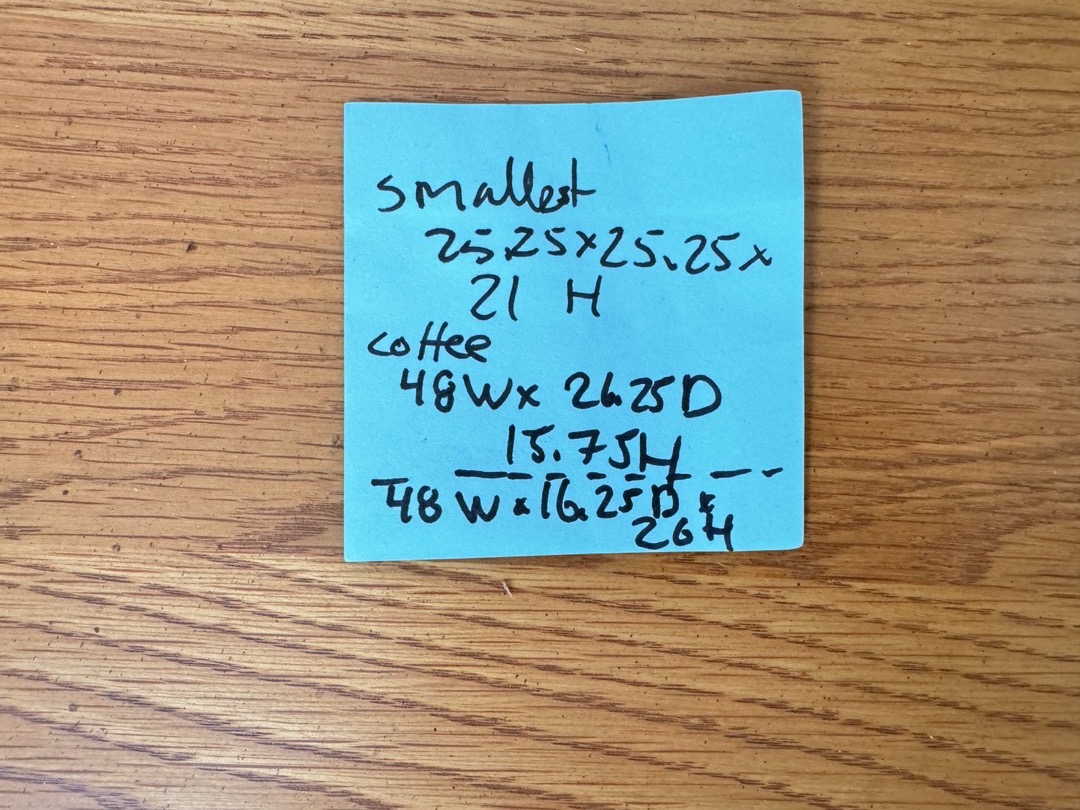 smallest
25.25x25.25x
21 H
coffee
48Wx 26.25D
15.75H
48 W x 16.25D x
26H